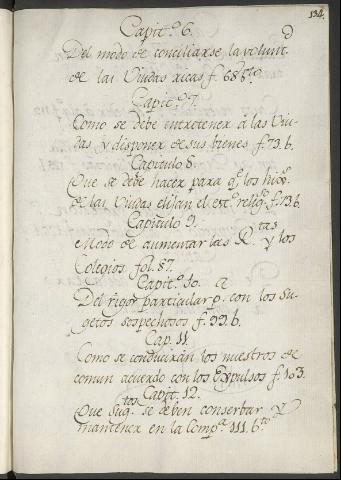 134.
Capit.º 6.
Del modo de conciliarse la volunt.
de las Viudas ricas f. 68 b.to
Capit.º 7.
Como se debe entretener â las Viu-
das y disponer de sus bienes f. 73. b.
Capitulo 8.
Que se debe hacer para q.e los hijos
de las Viudas elijan el est.º relig.º f. 73 b.
Capitulo 9.
Modo de aumentar las R.tas y los
Colegios fol. 87.
Capit.º 10.
Del rigor particular con los Su-
getos sospechosos f. 99. b.
Cap. 11.
Como se conducirán los nuestros de
comun acuerdo con los Expulsos f. 103.
Capit. 12.
Que Sug.tos se deben conserbar y
mantener en la Comp.a 111. b.to